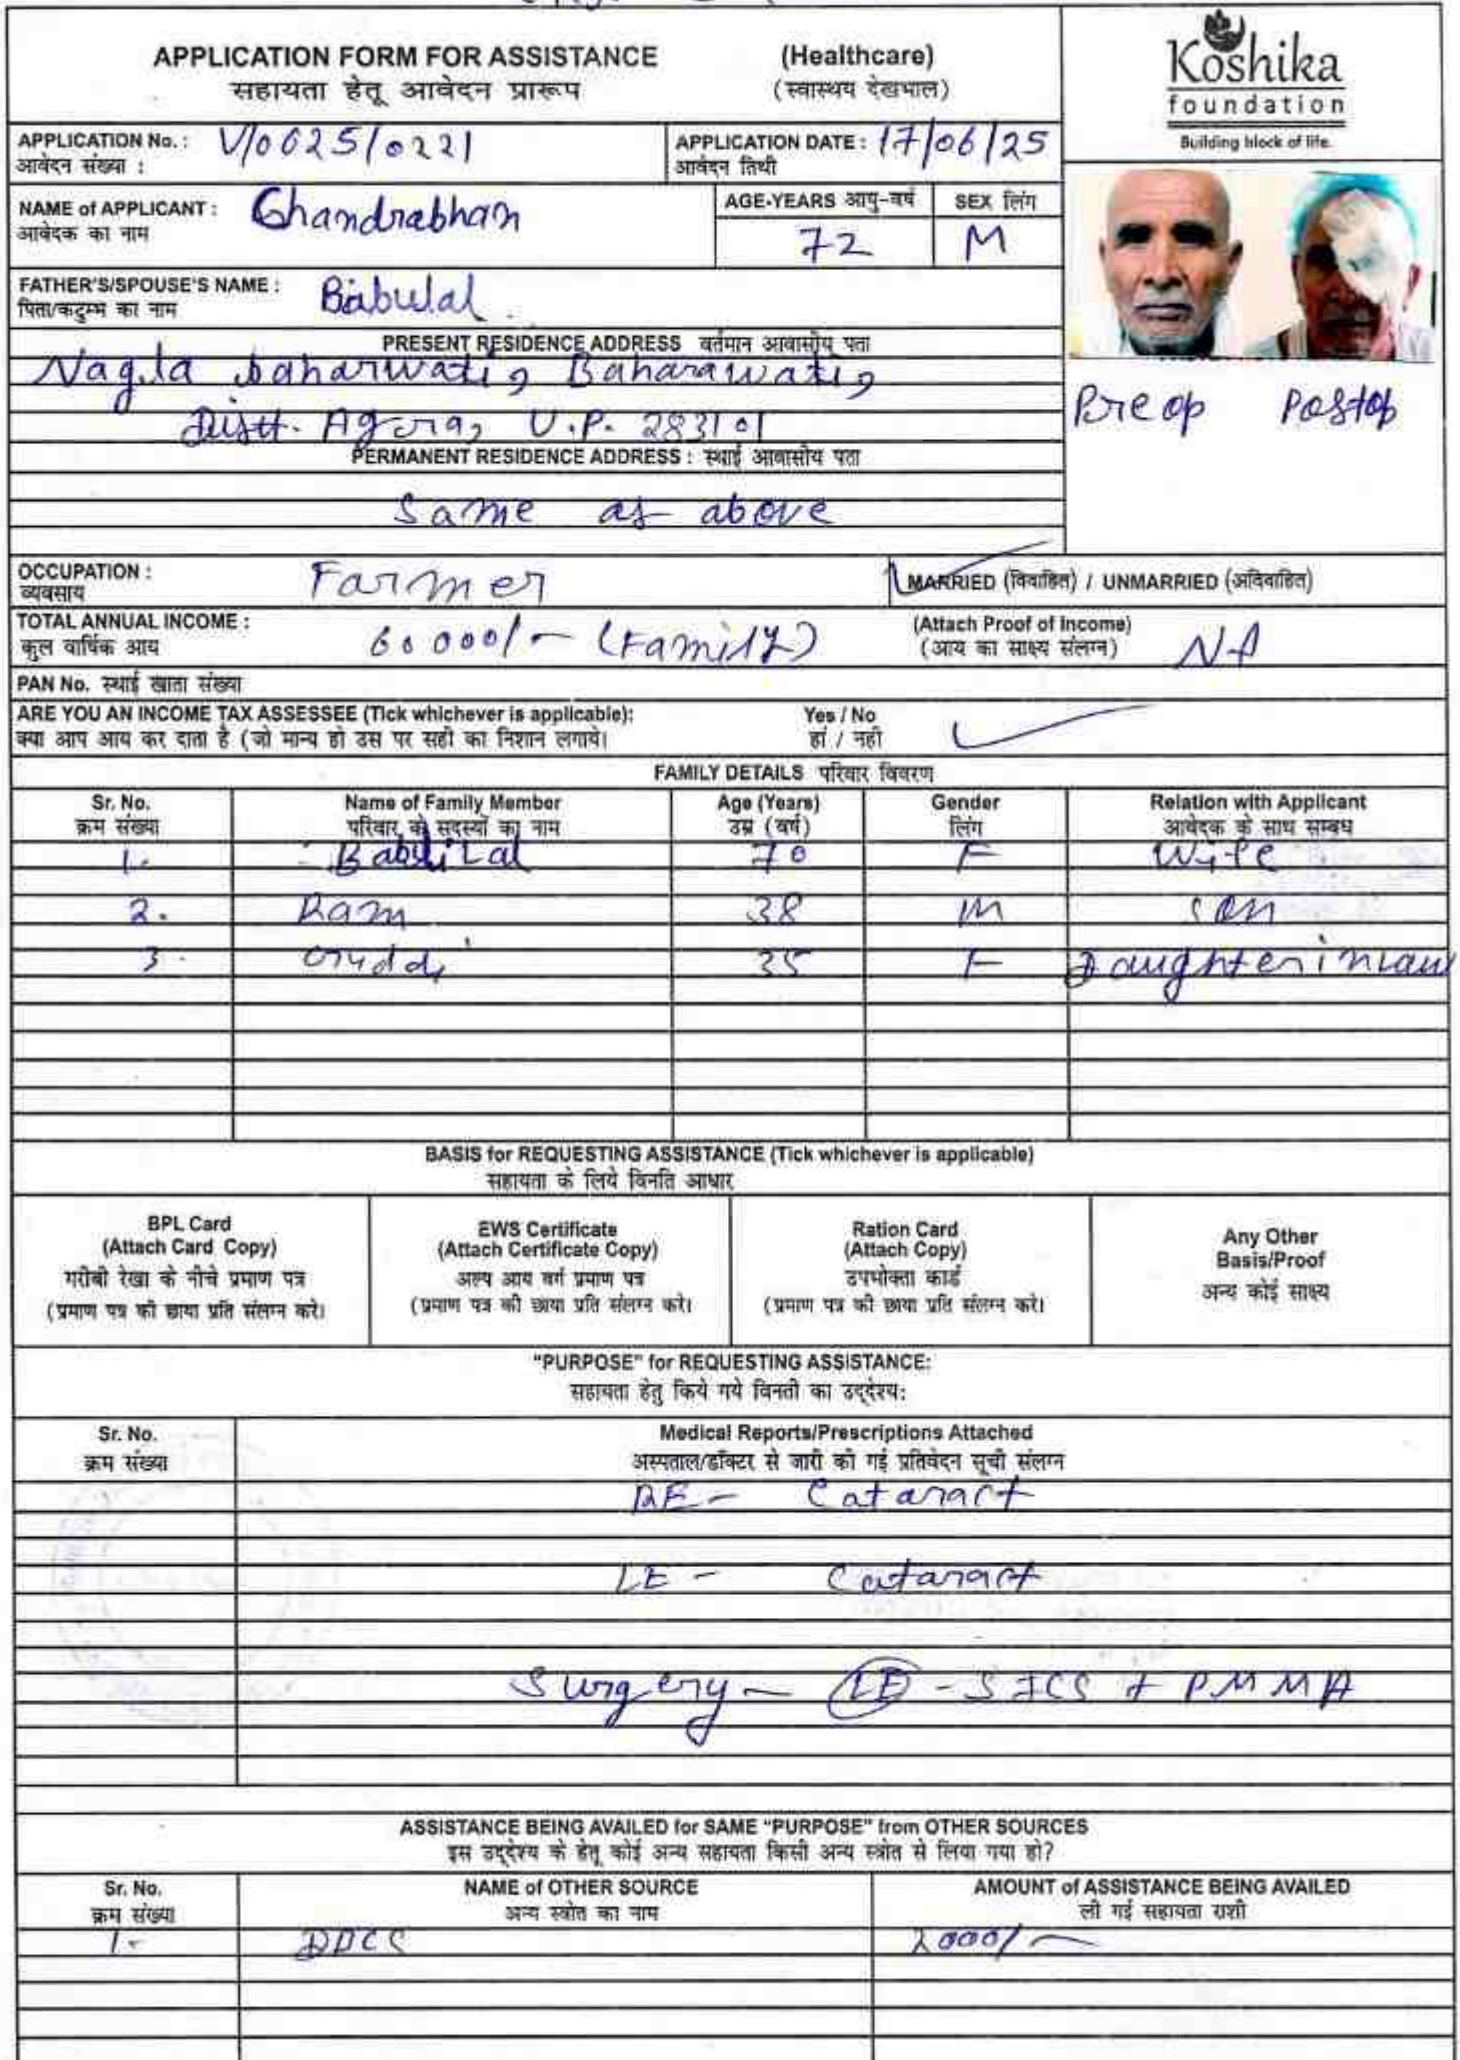 APPLICATION FORM FOR ASSISTANCE (Healthcare)
सहायता हेतू आवेदन प्रारूप (स्वास्थय देखभाल)
Koshika
foundation
Building block of life.
APPLICATION No. : V/0625/0221
आवेदन संख्या :
APPLICATION DATE : 17/06/25
आवेदन तिथी
NAME of APPLICANT : Chandrabhan
आवेदक का नाम
AGE-YEARS आयु-वर्ष
72
SEX लिंग
M
FATHER'S/SPOUSE'S NAME : Babulal
पिता/कटुम्भ का नाम
PRESENT RESIDENCE ADDRESS वर्तमान आवासीय पता
Nagla baharwati, Baharawati,
Distt. Agra, U.P. 283101
Preop Postop
PERMANENT RESIDENCE ADDRESS : स्थाई आवासीय पता
Same as above
OCCUPATION : Farmer
व्यवसाय
MARRIED (विवाहित) / UNMARRIED (अविवाहित)
TOTAL ANNUAL INCOME : 60000/- (Family)
कुल वार्षिक आय
(Attach Proof of Income) NA
(आय का साक्ष्य संलग्न)
PAN No. स्थाई खाता संख्या
ARE YOU AN INCOME TAX ASSESSEE (Tick whichever is applicable): Yes / No
क्या आप आय कर दाता है (जो मान्य हो उस पर सही का निशान लगाये। हां / नही
FAMILY DETAILS परिवार विवरण
Sr. No. Name of Family Member Age (Years) Gender Relation with Applicant
क्रम संख्या परिवार के सदस्यों का नाम उम्र (वर्ष) लिंग आवेदक के साथ सम्बध
1. 70 F Wife
2. Ram 38 M son
3. Guddi 35 F Daughter inlaw
BASIS for REQUESTING ASSISTANCE (Tick whichever is applicable)
सहायता के लिये विनति आधार
BPL Card
(Attach Card Copy)
गरीबी रेखा के नीचे प्रमाण पत्र
(प्रमाण पत्र की छाया प्रति संलग्न करे।
EWS Certificate
(Attach Certificate Copy)
अल्प आय वर्ग प्रमाण पत्र
(प्रमाण पत्र की छाया प्रति संलग्न करे।
Ration Card
(Attach Copy)
उपभोक्ता कार्ड
(प्रमाण पत्र की छाया प्रति संलग्न करे।
Any Other
Basis/Proof
अन्य कोई साक्ष्य
"PURPOSE" for REQUESTING ASSISTANCE:
सहायता हेतु किये गये विनती का उद्देश्य:
Sr. No. Medical Reports/Prescriptions Attached
क्रम संख्या अस्पताल/डॉक्टर से जारी की गई प्रतिवेदन सूची संलग्न
RE - Cataract
LE - Cataract
Surgery - LE - SICS + PMMA
ASSISTANCE BEING AVAILED for SAME "PURPOSE" from OTHER SOURCES
इस उद्देश्य के हेतू कोई अन्य सहायता किसी अन्य स्त्रोत से लिया गया हो?
Sr. No. NAME of OTHER SOURCE AMOUNT of ASSISTANCE BEING AVAILED
क्रम संख्या अन्य स्त्रोत का नाम ली गई सहायता राशी
1- 2000/-